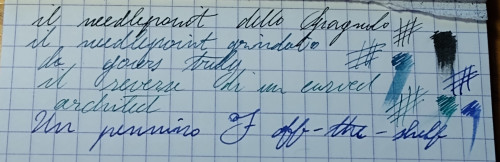 il needlepoint dello Spagnolo
il needlepoint grindato
da yours truly
il reverse di un curved
architect
Un pennino F off-the-shelf